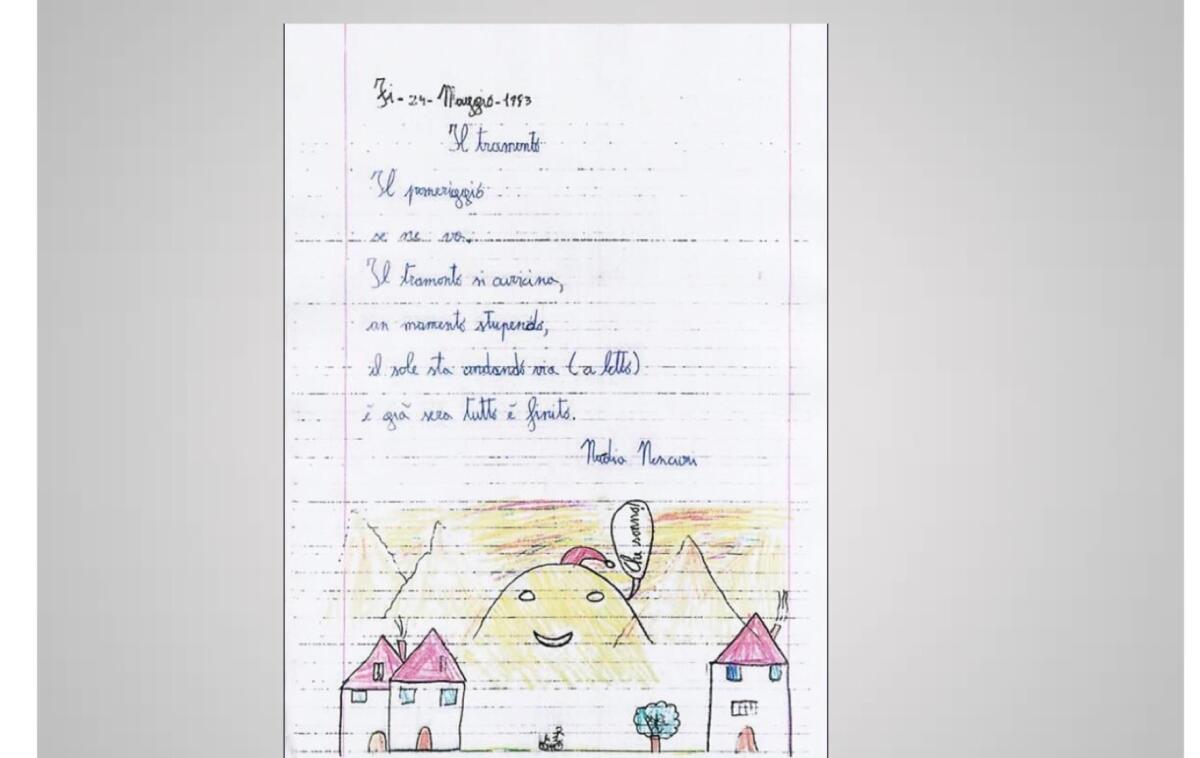 Fi-24-Maggio-1993
Il tramonto
Il pomeriggio
se ne va,
Il tramonto si avvicina,
un momento stupendo,
il sole sta andando via (a letto)
è già sera tutto è finito.
Nadia Nencioni
Che sonno!